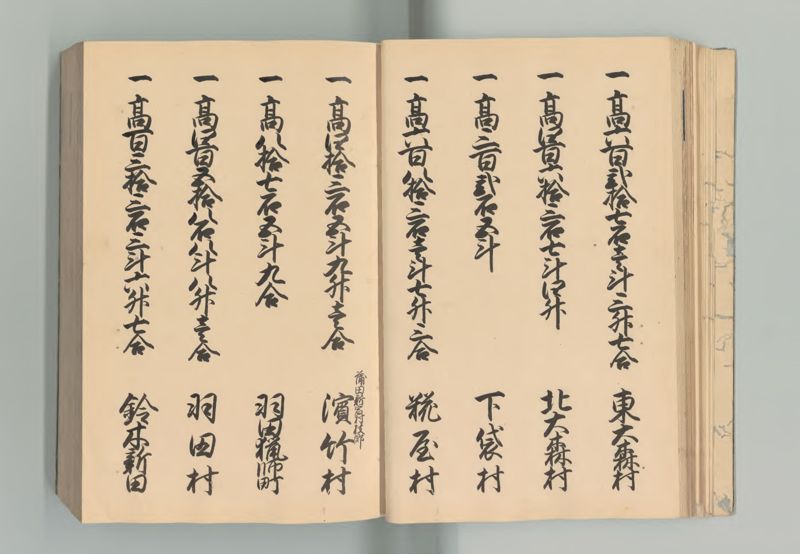 一 高六百弐拾七石壱斗三升七合 東大森村
一 高四百六拾三石七斗四升 北大森村
一 高三百弐石五斗 下袋村
一 高六百八拾三石壱斗七升三合 糀屋村
一 高四拾三石五斗九升壱合 濱竹村
蒲田新宿村枝郷
一 高八拾七石五斗九合 羽田猟師町
一 高四百五拾八石八斗八升壱合 羽田村
一 高百三拾三石三斗六升七合 鈴木新田